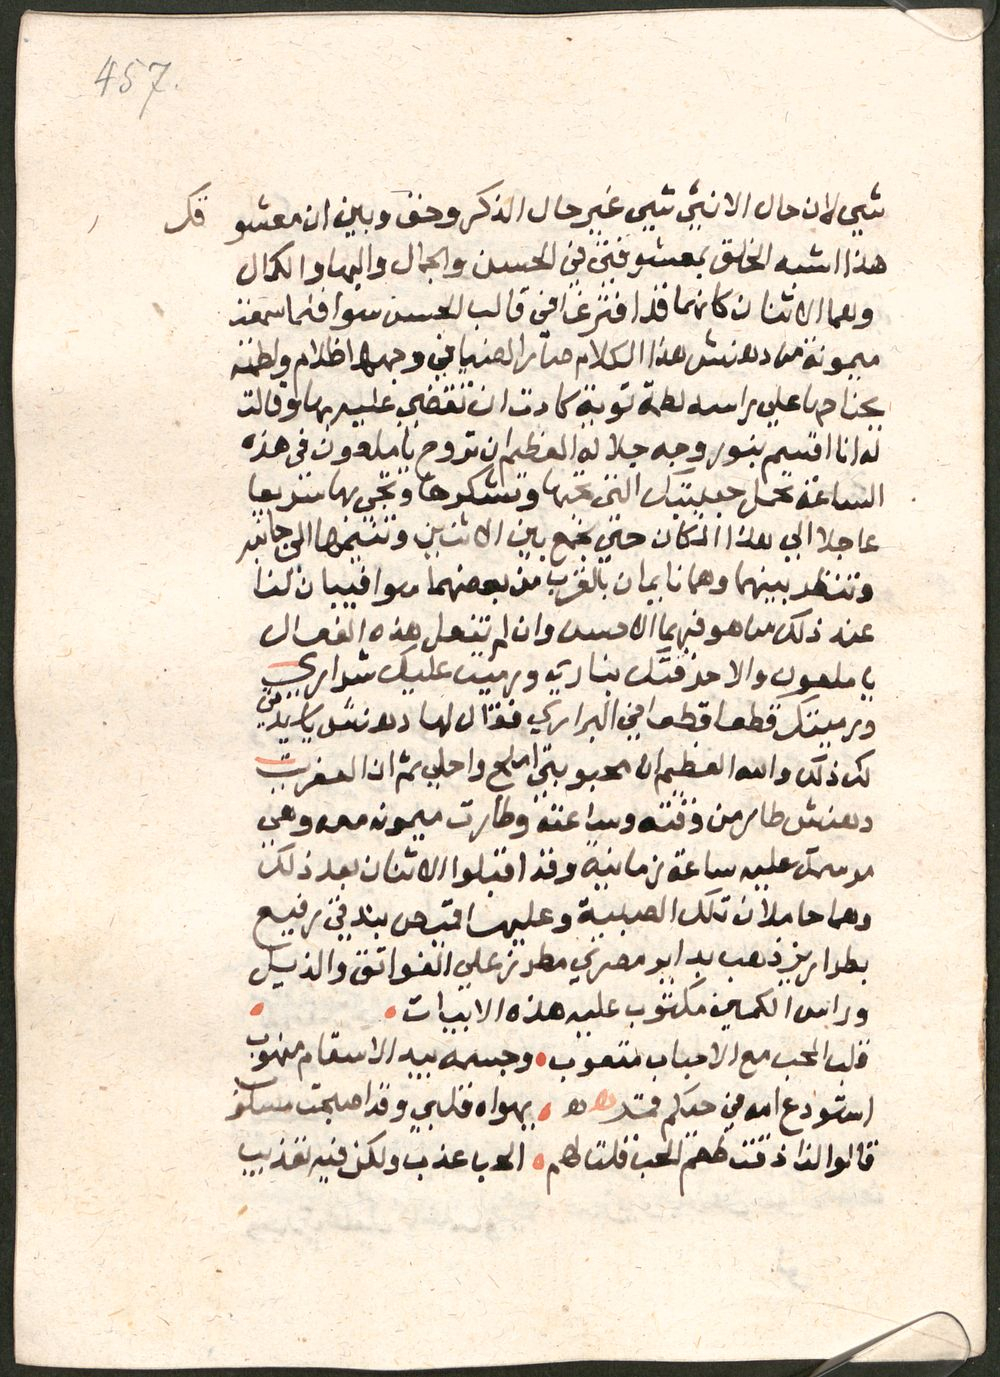 457.
شيي لان حال الانثي شيي غير حال الذكر وحق وبين ان معشو قك
هذا اشبه الخلق بمعشوقتي في الحسن والجمال والبها والكمال
وهما الاثنان كانهما قد افترغا في قالب الحسن سوا فلما سمعت
ميمونة من دهنش هذا الكلام صار الضيا في وجهها ظلام ولطمته
بجناحها علي راسه لطمة قوية كادت ان تقضي عليه بها وقالت
له انا اقسم بنور وجه جلاله العظيم ان تروح يا ملعون في هذه
الساعة تحمل حبيبتك التي تحبها وتشكرها وتجي بها سريعا
عاجلا الي هذا المكان حتي نجمع بين الاثنين وننيمها الي جانبه
وننظر بينهما وهما نايمان بالقرب من بعضهما سوا فيبان لنا
عند ذلك من هو فيهما الاحسن وان لم تفعل هذه الفعال
يا ملعون والا حرقتك بناري ورميت عليك شراري
ورميتك قطعا قطعا في البراري فقال لها دهنش يا ستي
لك ذلك والله العظيم ان محبوبتي املح واحلي ثم ان العفريت
دهنش طار من وقته وساعته وطارت ميمونه معه وهي
مرسمة عليه ساعة زمانية وقد اقبلوا الاثنان بعد ذلك
وهما حاملان تلك الصبية وعليها قميص بندقي رفيع
بطرازين ذهب بداير مصري مطرز علي الفواتق والذيل
وراس الكمين مكتوب عليه هذه الابيات
قلب المحب مع الاحباب متعوب وجسمه بيد الاسقام منهوب
استودع الله في حيكم قمرا يهواه قلبي وقد اصبحت مسلوب
قالوا لنا ذقت طعم الحب قلت لهم الحب عذب ولكن فيه تعذيب